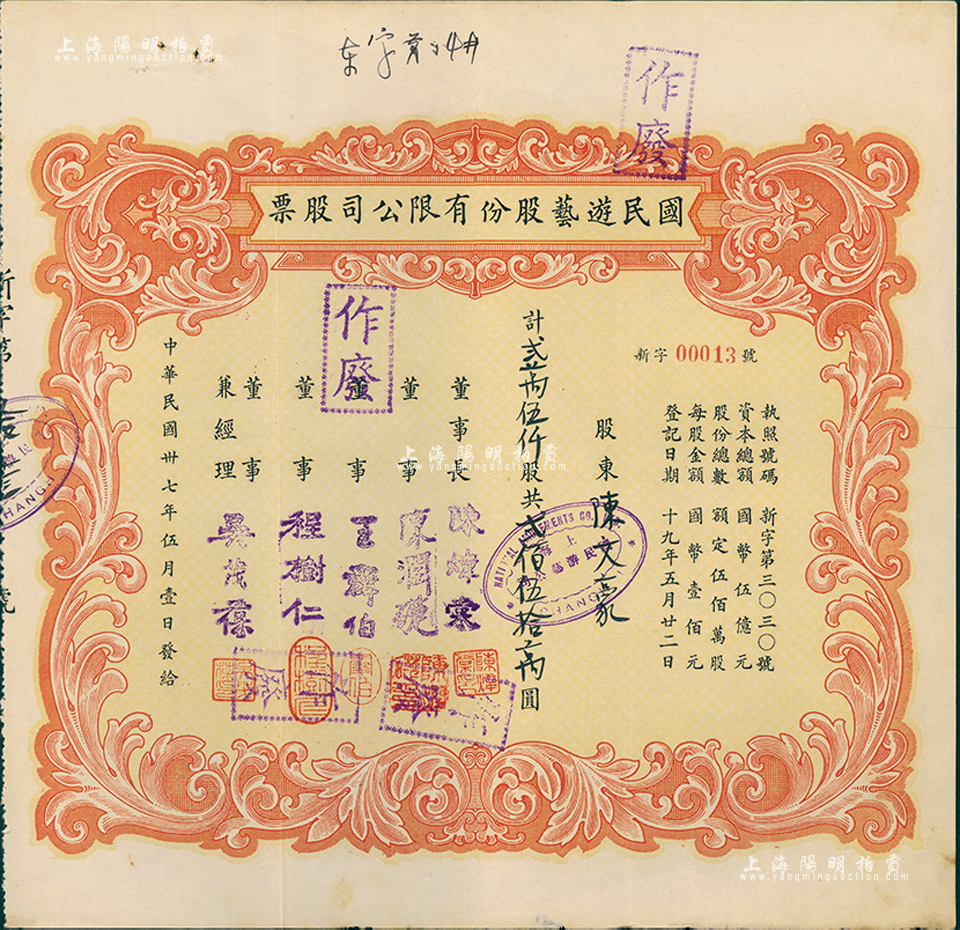 上海陽明拍賣
www.yangmingauction.com
作廢
國民遊藝股份有限公司股票
新字 00013 號
執照號碼 新字第三〇三〇號
資本總額 國幣伍億元
股份總數 額定伍佰萬股
每股金額 國幣壹佰元
登記日期 十九年五月廿二日
股東 陳文豪
計貳萬伍仟股共貳佰伍拾萬圓
NATIONAL AMUSEMENTS CO.
SHANGHAI
作廢
董事長
董事 陳潤琥
董事 王
董事 程樹仁
董事兼經理 吳茂葆
中華民國卅七年伍月壹日發給
上海陽明拍賣
www.yangmingauction.com
上海陽明拍賣
www.yangmingauction.com